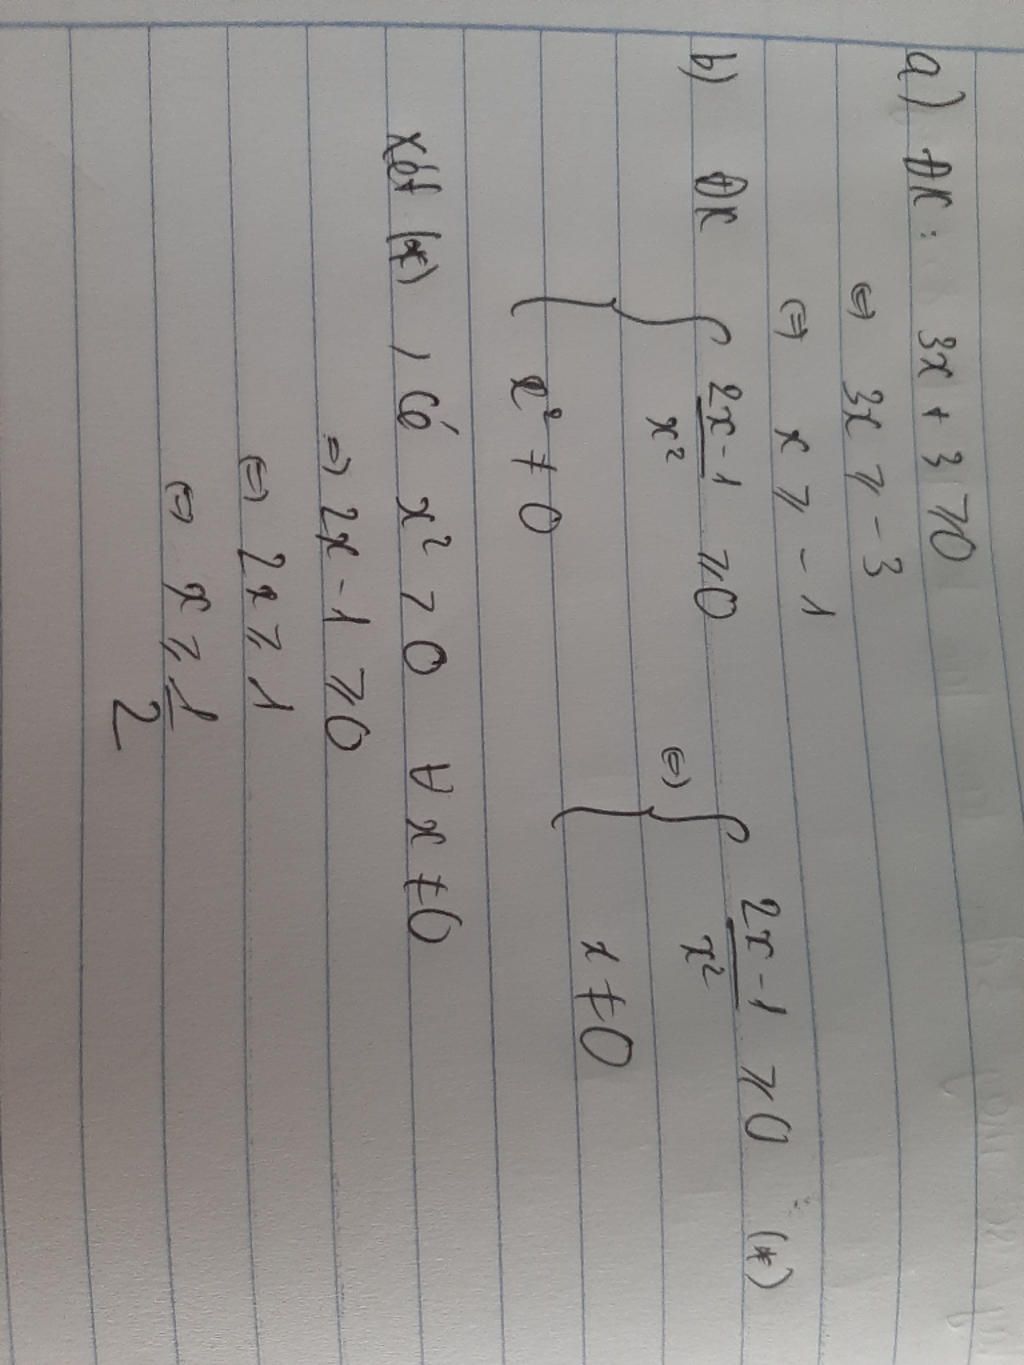 a) ĐK: 3x + 3 ⩾ 0
⇔ 3x ⩾ -3
⇔ x ⩾ -1
b) ĐK { (2x-1)/x² ⩾ 0 ⇔ { (2x-1)/x² ⩾ 0 (*)
x² ≠ 0 x ≠ 0
Xét (*), có x² > 0 ∀ x ≠ 0
⇒ 2x - 1 ⩾ 0
⇔ 2x ⩾ 1
⇔ x ⩾ 1/2